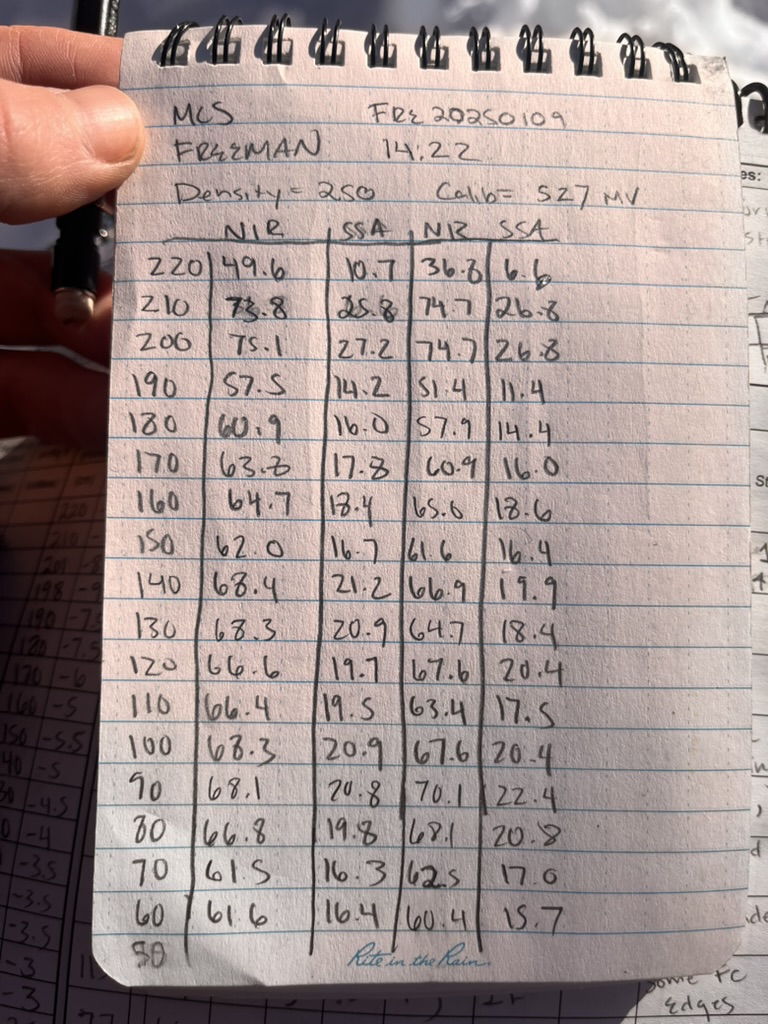 MCS FRE 20250109
FREEMAN 14:22
Density = 250 Calib = 527 MV
NIR SSA NIR SSA
220 49.6 10.7 36.8 6.6
210 73.8 25.8 74.7 26.8
200 75.1 27.2 74.7 26.8
190 57.5 14.2 51.4 11.4
180 60.9 16.0 57.9 14.4
170 63.8 17.8 60.9 16.0
160 64.7 18.4 65.0 18.6
150 62.0 16.7 61.6 16.4
140 68.4 21.2 66.9 19.9
130 68.3 20.9 64.7 18.4
120 66.6 19.7 67.6 20.4
110 66.4 19.5 63.4 17.5
100 68.3 20.9 67.6 20.4
90 68.1 20.8 70.1 22.4
80 66.8 19.8 68.1 20.8
70 61.5 16.3 62.5 17.0
60 61.6 16.4 60.4 15.7
50
Rite in the Rain
some FC
edges